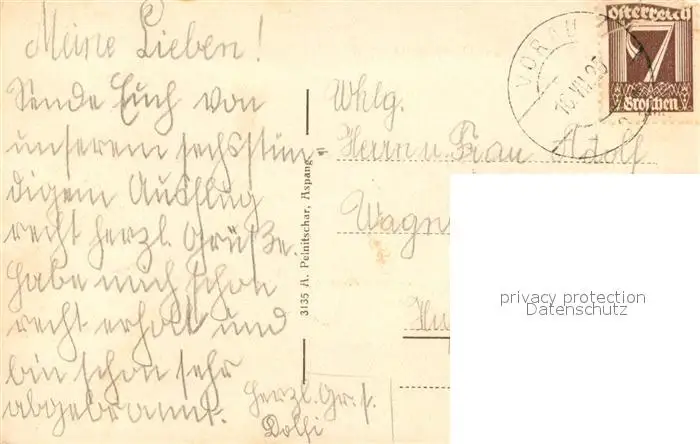 Meine Lieben!
Sende Euch von
unserem sechsstün-
digem Ausflug
recht herzl. Grüße.
Habe mich schon
recht erholt und
bin schon sehr
abgebrannt.
Herzl. Gr. s.
Dolfi
3135 A. Peinitschar, Aspang
VORAU
16.VII.26
Österreich
7
Groschen
Whlg.
Herrn u. Frau Adolf
Wagn
privacy protection
Datenschutz